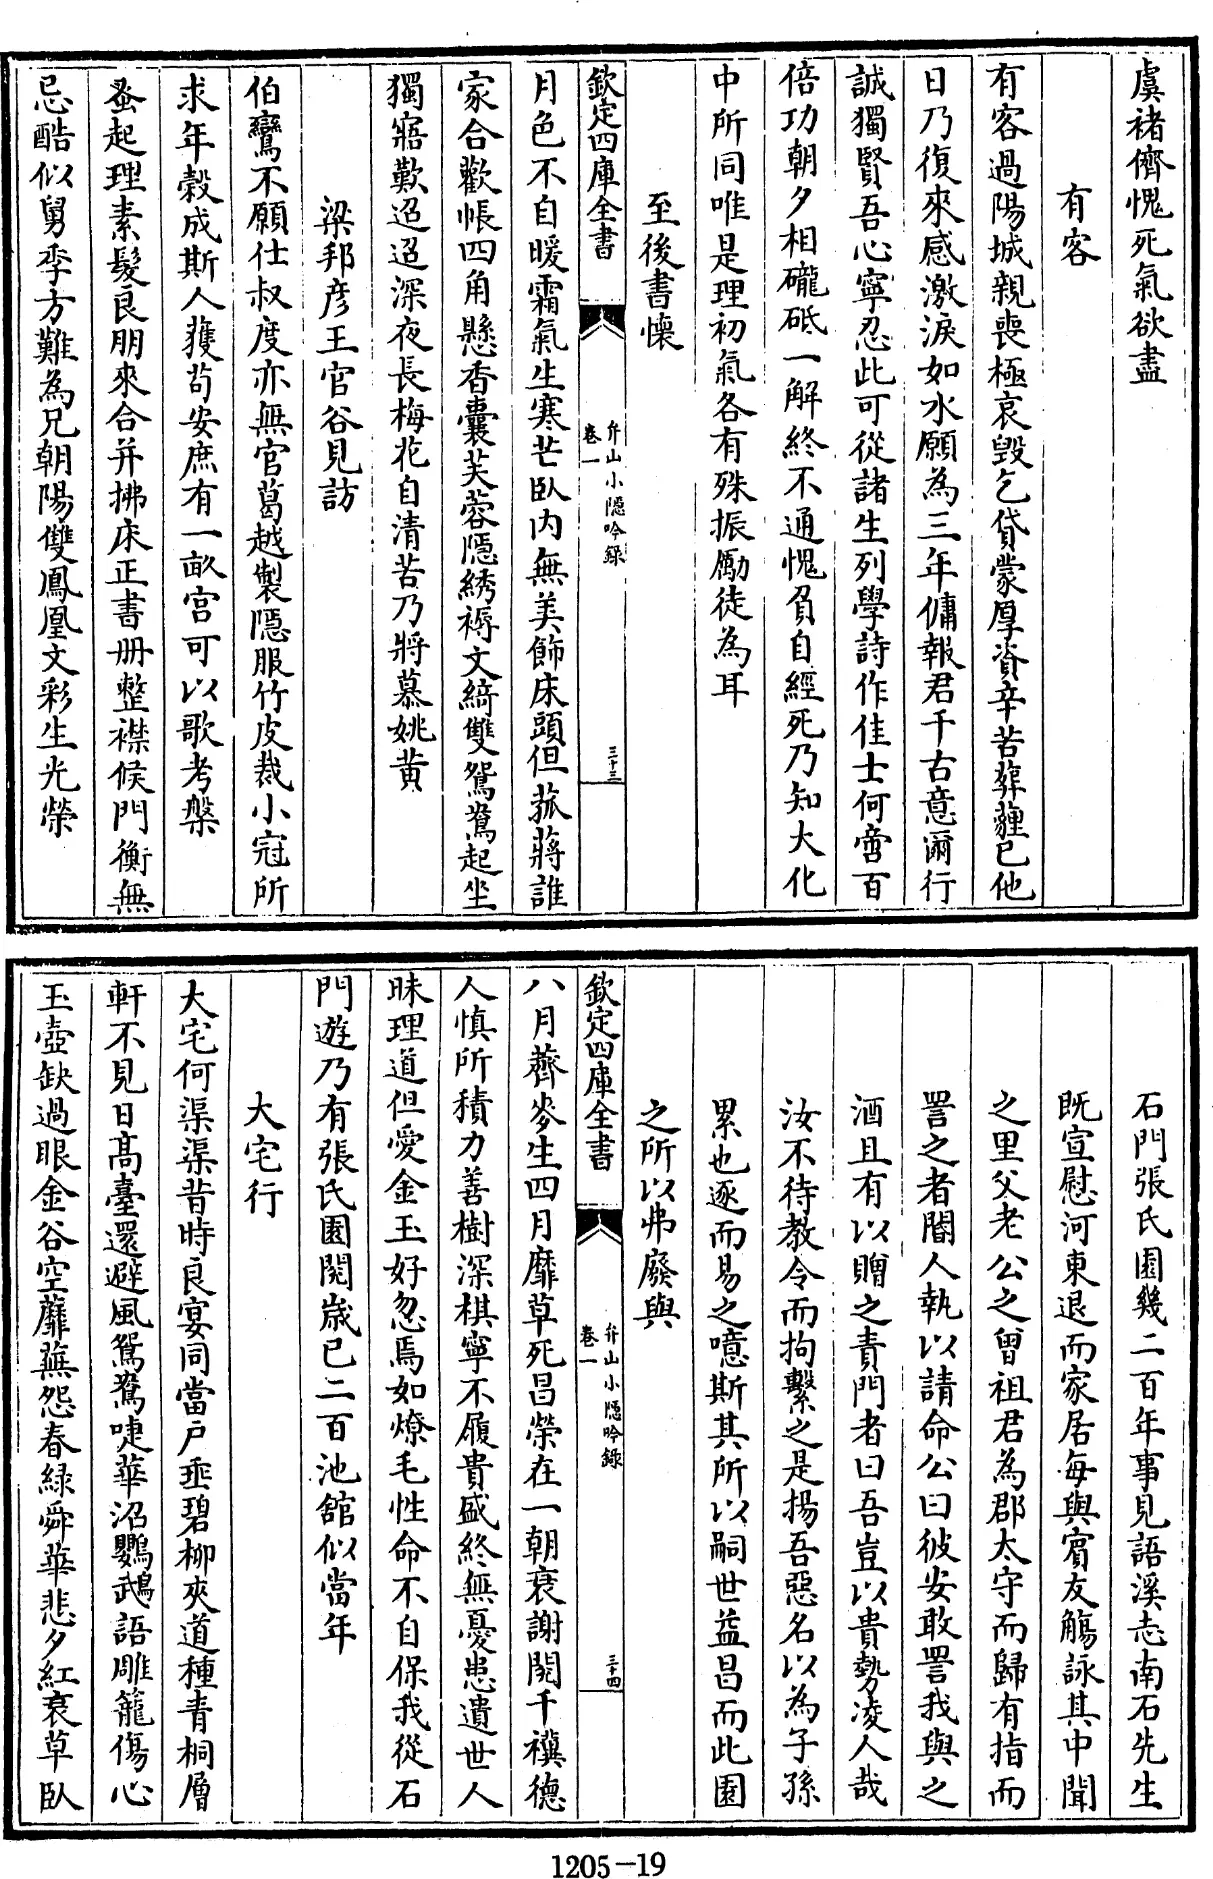 虞褚儕愧死氣欲盡
有客
有客過陽城親喪極哀毀乞貸蒙厚資辛苦葬薶已他
日乃復來感激淚如水願為三年傭報君千古意爾行
誠獨賢吾心寧忍此可從諸生列學詩作佳士何啻百
倍功朝夕相礲砥一解終不通愧負自經死乃知大化
中所同唯是理初氣各有殊振勵徒為耳
至後書懷
欽定四庫全書
弁山小隱吟錄
卷一
三十三
月色不自暖霜氣生寒芒臥內無美飾床頭但菰蔣誰
家合歡帳四角懸香囊芙蓉隱綉褥文綺雙鴛鴦起坐
獨寤歎迢迢深夜長梅花自清苦乃將慕姚黃
梁邦彦王官谷見訪
伯鸞不願仕叔度亦無官葛越製隱服竹皮裁小冠所
求年穀成斯人獲苟安庶有一畝宮可以歌考槃
蚤起理素髮良朋來合并拂床正書册整襟候門衡無
忌酷似舅季方難為兄朝陽雙鳳凰文彩生光榮
石門張氏園幾二百年事見語溪志南石先生
既宣慰河東退而家居每與賓友觴詠其中聞
之里父老公之曾祖君為郡太守而歸有指而
詈之者閽人執以請命公曰彼安敢詈我與之
酒且有以贈之責門者曰吾豈以貴勢凌人哉
汝不待教令而拘繫之是揚吾惡名以為子孫
累也逐而易之噫斯其所以嗣世益昌而此園
之所以弗廢與
欽定四庫全書
弁山小隱吟錄
卷一
三十四
八月薺麥生四月靡草死昌榮在一朝衰謝閱千禩德
人慎所積力善樹深棋寧不履貴盛終無憂患遺世人
昧理道但愛金玉好忽焉如燎毛性命不自保我從石
門遊乃有張氏園閱歲已二百池舘似當年
大宅行
大宅何渠渠昔時良宴同當户垂碧柳夾道種青桐層
軒不見日高臺還避風鴛鴦唼華沼鸚鵡語雕籠傷心
玉壺缺過眼金谷空蘼蕪怨春綠舜華悲夕紅衰草臥
1205-19